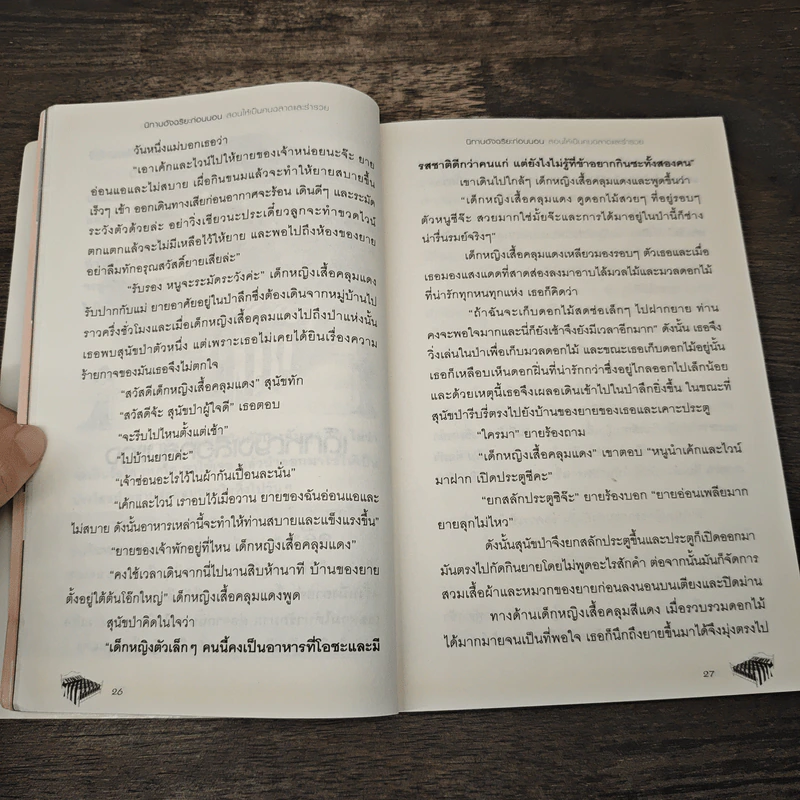 นิทานอัจฉริยะก่อนนอน สอนให้เป็นคนฉลาดและร่ำรวย
วันหนึ่งแม่บอกเธอว่า
"เอาเค้กและไวน์ไปให้ยายของเจ้าหน่อยนะจ๊ะ ยาย
อ่อนแอและไม่สบาย เผื่อกินขนมแล้วจะทำให้ยายสบายขึ้น
เร็วๆ เข้า ออกเดินทางเสียก่อนอากาศจะร้อน เดินดีๆ และระมัด
ระวังตัวด้วยล่ะ อย่าวิ่งเชียวนะประเดี๋ยวลูกจะทำขวดไวน์
ตกแตกแล้วจะไม่มีเหลือไว้ให้ยาย และพอไปถึงห้องของยาย
อย่าลืมทักอรุณสวัสดิ์ยายเสียล่ะ"
"รับรอง หนูจะระมัดระวังค่ะ" เด็กหญิงเสื้อคลุมแดง
รับปากกับแม่ ยายอาศัยอยู่ในป่าลึกซึ่งต้องเดินจากหมู่บ้านไป
ราวครึ่งชั่วโมงและเมื่อเด็กหญิงเสื้อคลุมแดงไปถึงป่าแห่งนั้น
เธอพบสุนัขป่าตัวหนึ่ง แต่เพราะเธอไม่เคยได้ยินเรื่องความ
ร้ายกาจของมันเธอจึงไม่ตกใจ
"สวัสดีเด็กหญิงเสื้อคลุมแดง" สุนัขทัก
"สวัสดีจ้ะ สุนัขป่าผู้ใจดี" เธอตอบ
"จะรีบไปไหนตั้งแต่เช้า"
"ไปบ้านยายค่ะ"
"เจ้าซ่อนอะไรไว้ในผ้ากันเปื้อนละนั่น"
"เค้กและไวน์ เราอบไว้เมื่อวาน ยายของฉันอ่อนแอและ
ไม่สบาย ดังนั้นอาหารเหล่านี้จะทำให้ท่านสบายและแข็งแรงขึ้น"
"ยายของเจ้าพักอยู่ที่ไหน เด็กหญิงเสื้อคลุมแดง"
"คงใช้เวลาเดินจากนี่ไปนานสิบห้านาที บ้านของยาย
ตั้งอยู่ใต้ต้นโอ๊กใหญ่" เด็กหญิงเสื้อคลุมแดงพูด
สุนัขป่าคิดในใจว่า
"เด็กหญิงตัวเล็กๆ คนนี้คงเป็นอาหารที่โอชะและมี
26
นิทานอัจฉริยะก่อนนอน สอนให้เป็นคนฉลาดและร่ำรวย
รสชาติดีกว่าคนแก่ แต่ยังไงไม่รู้ที่ข้าอยากกินซะทั้งสองคน"
เขาเดินไปใกล้ๆ เด็กหญิงเสื้อคลุมแดงและพูดขึ้นว่า
"เด็กหญิงเสื้อคลุมแดง ดูดอกไม้สวยๆ ที่อยู่รอบๆ
ตัวหนูซีจ๊ะ สวยมากใช่มั้ยจ๊ะและการได้มาอยู่ในป่านี้ก็ช่าง
น่ารื่นรมย์จริงๆ"
เด็กหญิงเสื้อคลุมแดงเหลียวมองรอบๆ ตัวเธอและเมื่อ
เธอมองแสงแดดที่สาดส่องลงมาอาบไล้มวลไม้และมวลดอกไม้
ที่น่ารักทุกหนทุกแห่ง เธอก็คิดว่า
"ถ้าฉันจะเก็บดอกไม้สดช่อเล็กๆ ไปฝากยาย ท่าน
คงจะพอใจมากและนี่ก็ยังเช้าจึงยังมีเวลาอีกมาก" ดังนั้น เธอจึง
วิ่งเล่นในป่าเพื่อเก็บมวลดอกไม้ และขณะเธอเก็บดอกไม้อยู่นั้น
เธอก็เหลือบเห็นดอกอื่นที่น่ารักกว่าซึ่งอยู่ไกลออกไปเล็กน้อย
และด้วยเหตุนี้เธอจึงเผลอเดินเข้าไปในป่าลึกยิ่งขึ้น ในขณะที่
สุนัขป่ารีบรี่ตรงไปยังบ้านของยายของเธอและเคาะประตู
"ใครมา" ยายร้องถาม
"เด็กหญิงเสื้อคลุมแดง" เขาตอบ "หนูนำเค้กและไวน์
มาฝาก เปิดประตูซีคะ"
"ยกสลักประตูซิจ๊ะ" ยายร้องบอก "ยายอ่อนเพลียมาก
ยายลุกไม่ไหว"
ดังนั้นสุนัขป่าจึงยกสลักประตูขึ้นและประตูก็เปิดออกมา
มันตรงไปกัดกินยายโดยไม่พูดอะไรสักคำ ต่อจากนั้นมันก็จัดการ
สวมเสื้อผ้าและหมวกของยายก่อนลงนอนบนเตียงและปิดม่าน
ทางด้านเด็กหญิงเสื้อคลุมสีแดง เมื่อรวบรวมดอกไม้
ได้มากมายจนเป็นที่พอใจ เธอก็นึกถึงยายขึ้นมาได้จึงมุ่งตรงไป
27